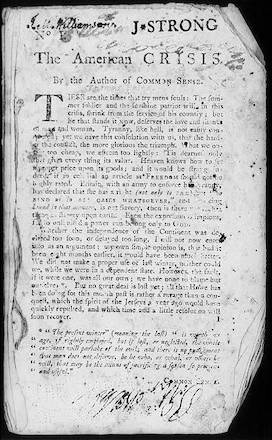 Williamson
J·STRONG
The American CRISIS.
By the Author of COMMON SENSE.
THESE are the times that try mens souls: The sum-
mer soldier and the sunshine patriot will, in this
crisis, shrink from the service of his country; but
he that stands it Now, deserves the love and thanks
of man and woman. Tyranny, like hell, is not easily con-
quered; yet we have this consolation with us, that the harder
the conflict, the more glorious the triumph. What we ob-
tain too cheap, we esteem too lightly:
that gives every thing its value. Heaven knows how to set
a proper price upon its goods; and it would be strange in-
deed, if so celestial an article as FREEDOM should not be
highly rated. Britain, with an army to enforce her tyranny,
has declared, that she has a right (not only to TAX, but) "to
BIND us in ALL CASES WHATSOEVER," and if being
bound in that manner is not slavery, then is there not such a
thing as slavery upon earth. Even the expression is impious,
for so unlimited a power can belong only to God.
Whether the Independence of the Continent was de-
clared too soon, or delayed too long, I will not now enter
into as an argument; my own simple opinion is, that had it
been eight months earlier, it would have been much better.
We did not make a proper use of last winter, neither could
we, while we were in a dependent state. However, the fault,
if it were one, was all our own; we have none to blame but
ourselves*. But no great deal is lost yet; all that Howe has
been doing for this month past is rather a ravage than a con-
quest, which the spirit of the Jersies a year ago would have
quickly repulsed, and which time and a little resolution will
soon recover.
* "The present winter" (meaning the last) "is worth an
age, if rightly employed, but if lost, or neglected, the whole
continent will partake of the evil; and there is no punishment
that man does not deserve, be he who, or what, or where he
will, that may be the means of sacrificing a season so precious
and useful."
COMMON SENSE.